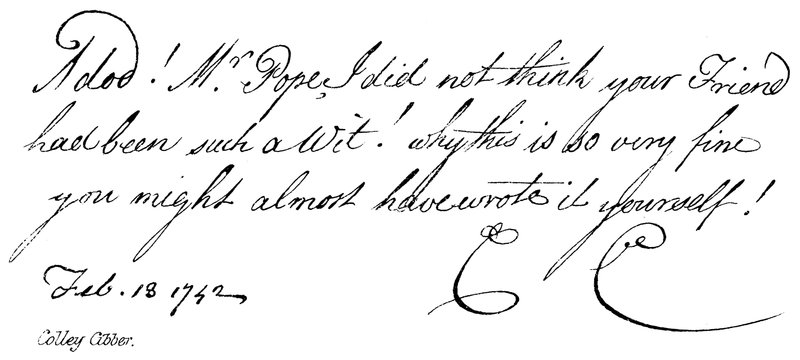 Adod! Mr. Pope, I did not think your Friend
had been such a Wit! why this is so very fine
you might almost have wrote it yourself!
C C
Feb. 13 1742
Colley Cibber.